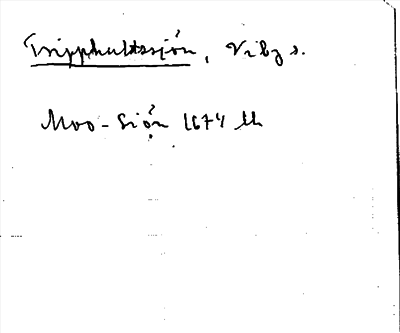 Tripphultssjön, Viby s.
Moo-Siön 1674 lk